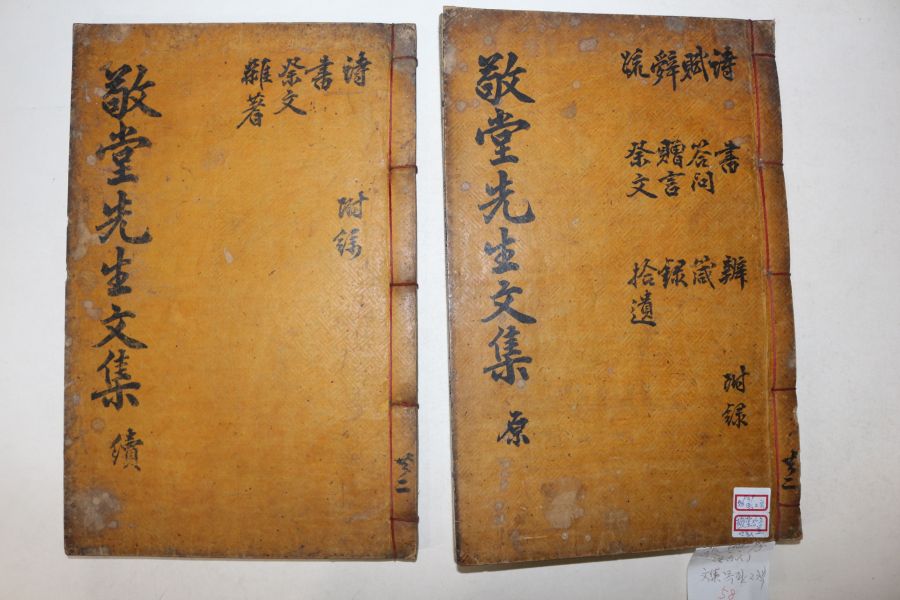 敬堂先生文集 續
詩
書
祭文
雜著
附錄
共二
敬堂先生文集 原
詩 書 辨
賦 答問 箴
辭 贈言 錄
疏 祭文 拾遺
附錄
共二
58